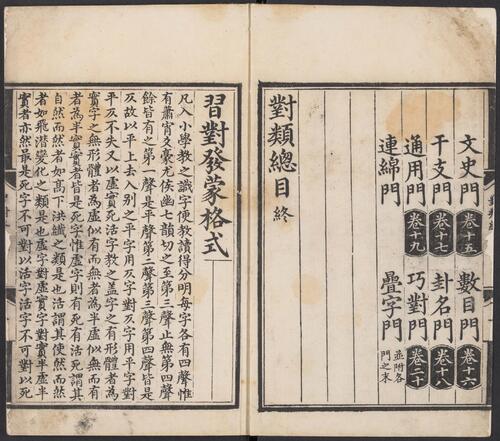 文史門 卷十五 數目門 卷十六
干支門 卷十七 卦名門 卷十八
通用門 卷十九 巧對門 卷二十
連綿門 疊字門 並附各門之末
對類總目 終
習對發蒙格式
凡入小學教之識字便教讀得分明每字各有四聲惟
有蕭宵爻豪尤侯幽七韻切之至第三聲止無第四聲
餘皆有之第一聲是平聲第二聲第三聲第四聲皆是
仄故以平上去入别之平字用仄字對仄字用平字對
平仄不失又以虛實死活字教之盖字之有形體者為
實字之無形體者為虛似有而無者為半虛似無而有
者為半實實者皆是死字惟虛字則有死有活死謂其
自然而然者如高下洪纖之類是也活謂其使然而然
者如飛潜變化之類是也虛字對虛實字對實半虛半
實者亦然最是死字不可對以活字活字不可對以死